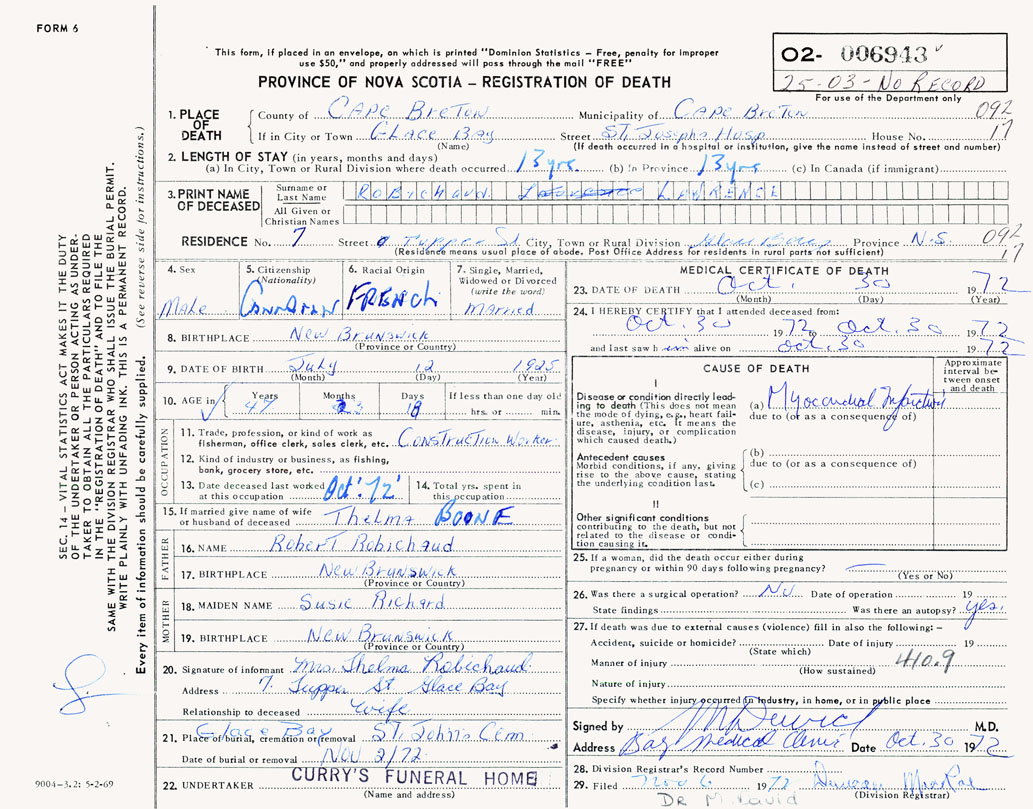 FORM 6
This form, if placed in an envelope, on which is printed "Dominion Statistics – Free, penalty for improper
use $50," and properly addressed will pass through the mail "FREE"
PROVINCE OF NOVA SCOTIA – REGISTRATION OF DEATH
O2- 006943
25-03-No RECORD
For use of the Department only
1. PLACE OF DEATH
County of CAPE BRETON Municipality of CAPE BRETON 092
If in City or Town GLACE BAY Street ST. Josephs Hosp House No. 17
(Name) (If death occurred in a hospital or institution, give the name instead of street and number)
2. LENGTH OF STAY (in years, months and days)
(a) In City, Town or Rural Division where death occurred 13 yrs. (b) In Province 13 yrs. (c) In Canada (if immigrant)
3. PRINT NAME OF DECEASED
Surname or Last Name ROBICHAUD LAWRENCE
All Given or Christian Names
RESIDENCE No. 7 Street Tupper St City, Town or Rural Division Glace Bay Province N.S. 092
(Residence means usual place of abode. Post Office Address for residents in rural parts not sufficient) 17
4. Sex Male
5. Citizenship (Nationality) CANADIAN
6. Racial Origin FRENCH
7. Single, Married, Widowed or Divorced (write the word) Married
8. BIRTHPLACE New Brunswick
(Province or Country)
9. DATE OF BIRTH July 12 1925
(Month) (Day) (Year)
10. AGE in Years 47 Months 3 Days 18 If less than one day old hrs. or min.
OCCUPATION
11. Trade, profession, or kind of work as fisherman, office clerk, sales clerk, etc. Construction Worker
12. Kind of industry or business, as fishing, bank, grocery store, etc.
13. Date deceased last worked at this occupation Oct. '72'
14. Total yrs. spent in this occupation
15. If married give name of wife or husband of deceased Thelma BOONE
FATHER
16. NAME Robert Robichaud
17. BIRTHPLACE New Brunswick
(Province or Country)
MOTHER
18. MAIDEN NAME Susie Richard
19. BIRTHPLACE New Brunswick
(Province or Country)
20. Signature of informant Mrs. Thelma Robichaud
Address 7. Tupper St Glace Bay
Relationship to deceased wife
21. Place of burial, cremation or removal Glace Bay ST. John's Cem
Date of burial or removal NOV 2/72
22. UNDERTAKER CURRY'S FUNERAL HOME
(Name and address)
MEDICAL CERTIFICATE OF DEATH
23. DATE OF DEATH Oct. 30 1972
(Month) (Day) (Year)
24. I HEREBY CERTIFY that I attended deceased from:
Oct. 30 1972 to Oct. 30 1972
and last saw him alive on Oct. 30 1972
CAUSE OF DEATH
Approximate interval between onset and death
I
Disease or condition directly leading to death (This does not mean the mode of dying, e.g., heart failure, asthenia, etc. It means the disease, injury, or complication which caused death.)
(a) Myocardial Infarction
due to (or as a consequence of)
Antecedent causes
Morbid conditions, if any, giving rise to the above cause, stating the underlying condition last.
(b)
due to (or as a consequence of)
(c)
II
Other significant conditions
contributing to the death, but not related to the disease or condition causing it.
25. If a woman, did the death occur either during
pregnancy or within 90 days following pregnancy?
(Yes or No)
26. Was there a surgical operation? No Date of operation 19
State findings Was there an autopsy? yes.
27. If death was due to external causes (violence) fill in also the following:–
Accident, suicide or homicide? Date of injury 19
(State which)
Manner of injury 410.9
(How sustained)
Nature of injury
Specify whether injury occurred in industry, in home, or in public place
Signed by M.D.
Address Bay Medical Clinic Date Oct. 30 1972
28. Division Registrar's Record Number
29. Filed Nov 6 1972 Duncan MacRae
(Division Registrar)
DR
SEC. 14 – VITAL STATISTICS ACT MAKES IT THE DUTY
OF THE UNDERTAKER OR PERSON ACTING AS UNDER-
TAKER TO OBTAIN ALL THE PARTICULARS REQUIRED
IN THE "REGISTRATION OF DEATH" AND TO FILE THE
SAME WITH THE DIVISION REGISTRAR WHO SHALL ISSUE THE BURIAL PERMIT.
WRITE PLAINLY WITH UNFADING INK. THIS IS A PERMANENT RECORD.
Every item of information should be carefully supplied. (See reverse side for instructions.)
9004-3.2: 5-2-69